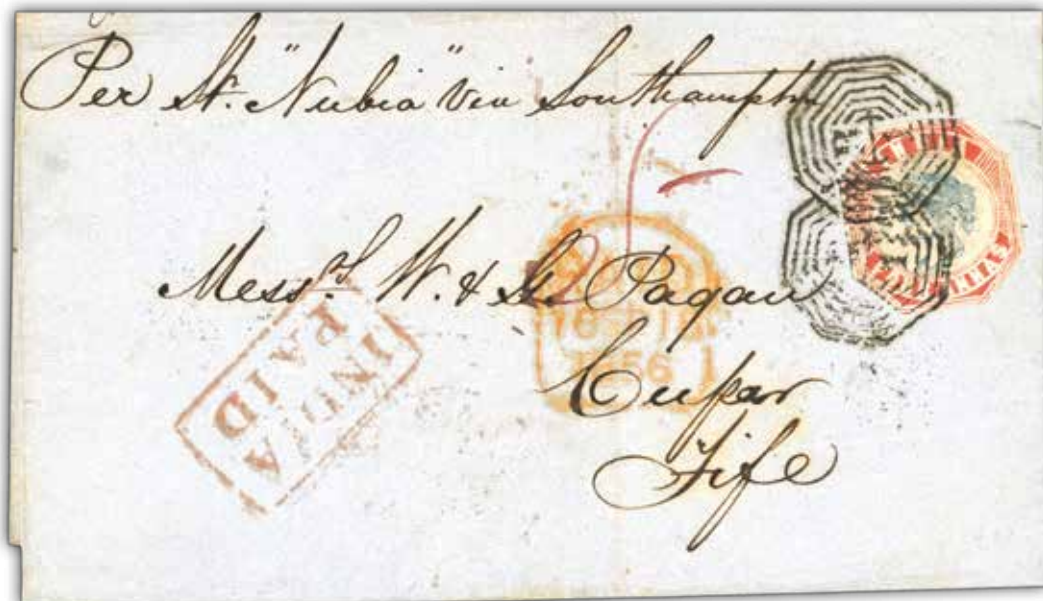 Per St. "Nubia" via Southampton
Mess.rs W. & G. Pagan
Cupar
Fife
INDIA
PAID
PAID
1856